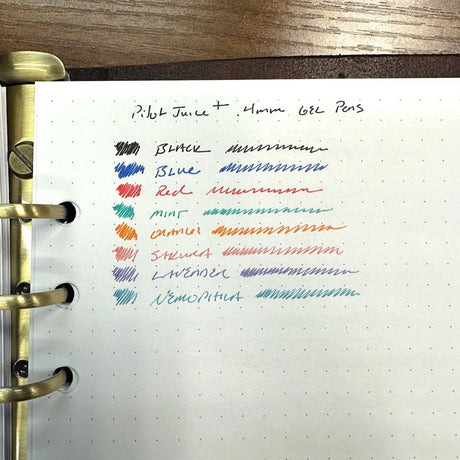 Pilot Juice + .4mm Gel Pens
Black
Blue
Red
Mint
Orange
Sakura
Lavender
Nemophila